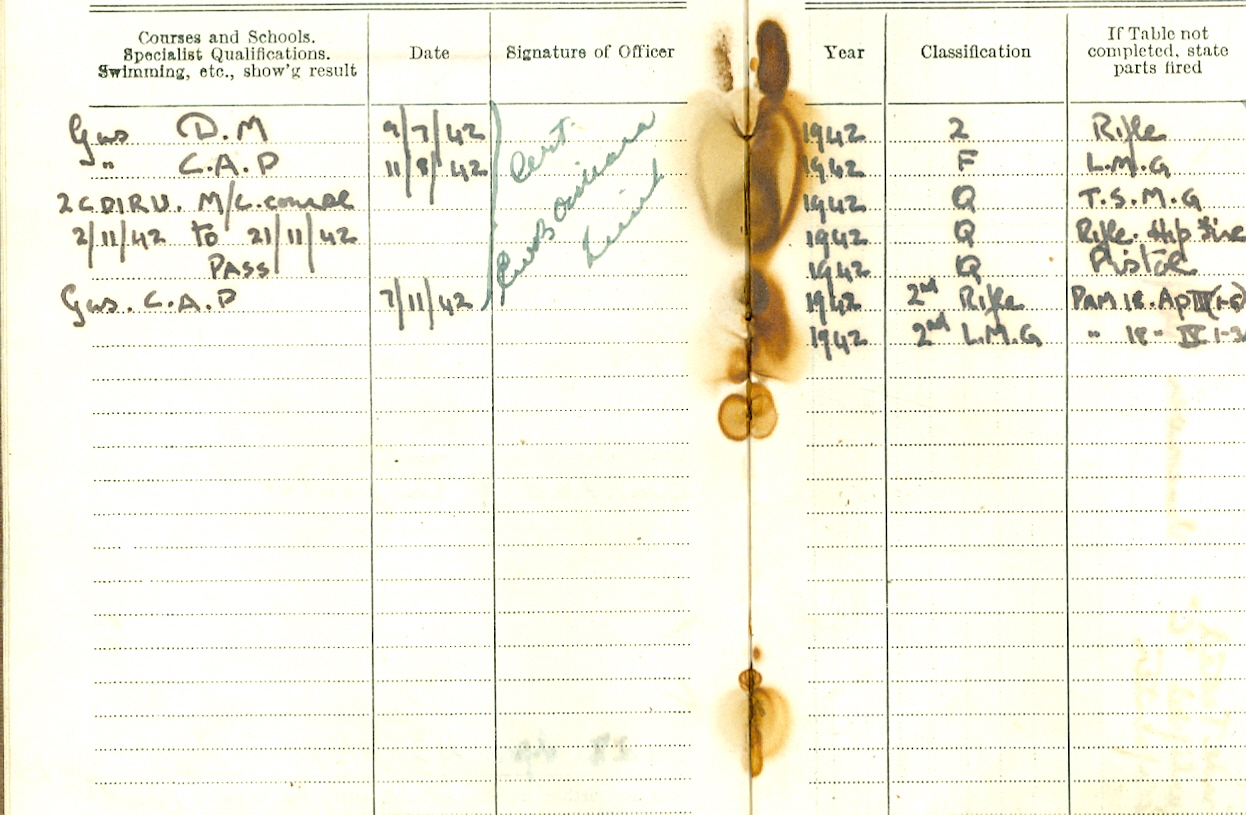 Courses and Schools.
Specialist Qualifications.
Swimming, etc., show'g result
Date
Signature of Officer
Gas D.M 9/7/42 Cert.
" C.A.P 11/8/42
M/C. course
2/11/42 to 21/11/42
PASS
Gas. C.A.P 7/11/42
Lieut
Year
Classification
If Table not
completed, state
parts fired
1942 2 Rifle
1942 F L.M.G
1942 Q T.S.M.G
1942 Q Rifle. Hip Fire
1942 Q Pistol
1942 2nd Rifle PAM 18. Ap III (1-8)
1942 2nd L.M.G " 18 " IV 1-3